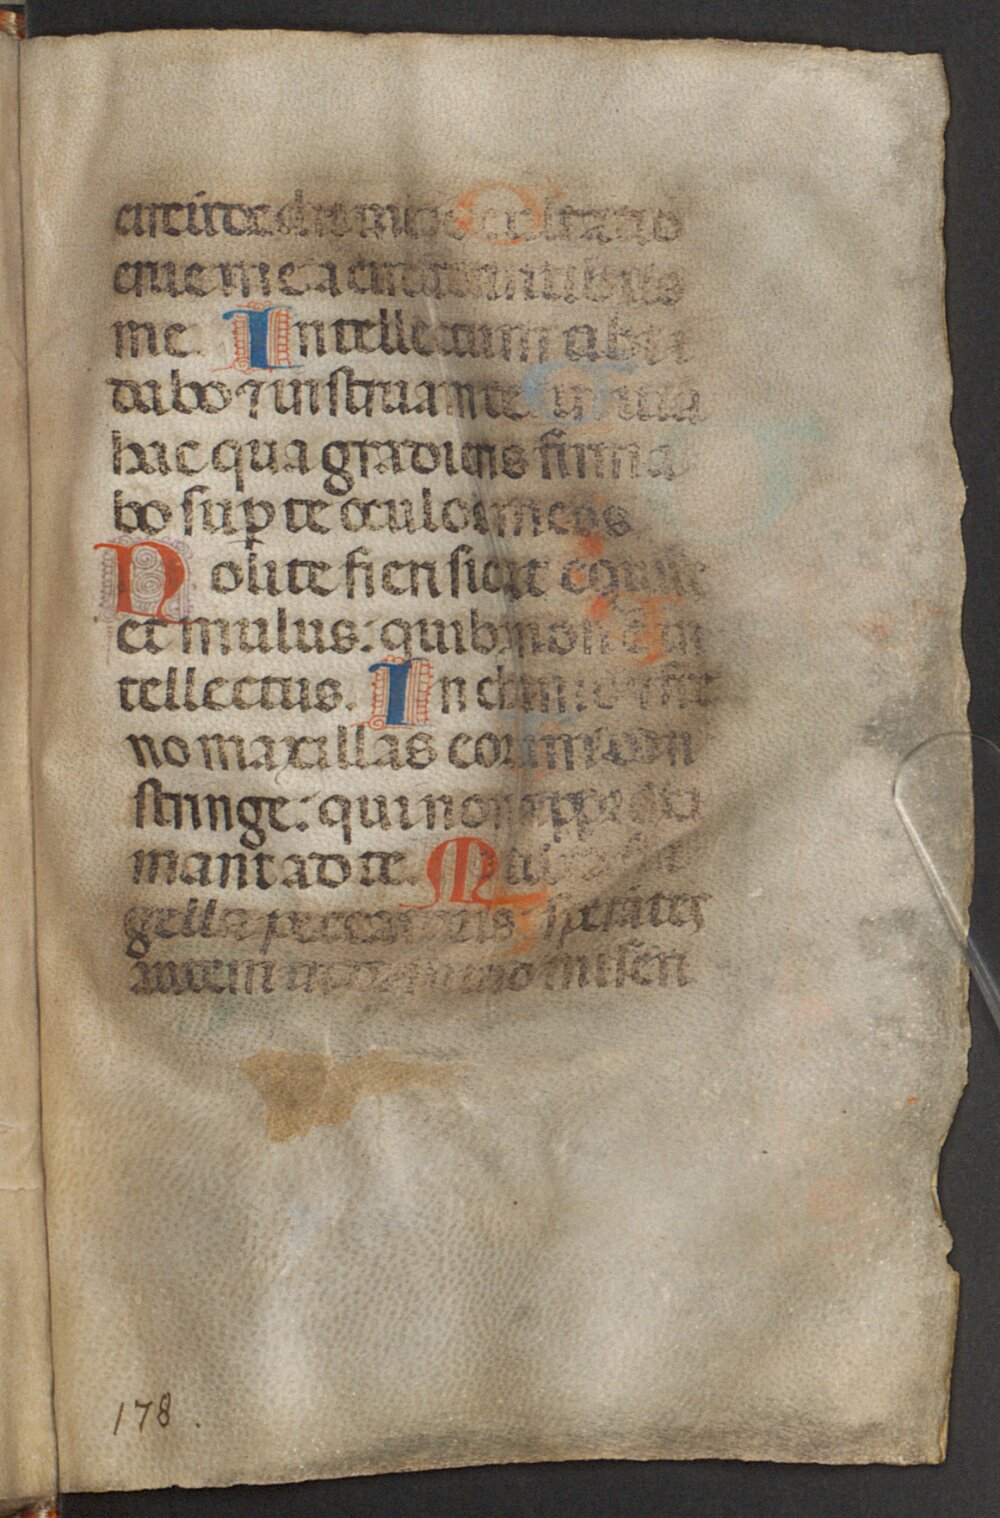 cūdedit me exultatio
erue me a circundantibus
me. Intellectum tibi
dabo ⁊ instruam te in uia
hac qua gradieris firma
bo suꝑ te oculos meos
Nolite fieri sicut equus
et mulus: quib non ē in
tellectus. In chamo ⁊ fre
no maxillas eorum con
stringe: qui non approxi
mant ad te. Multa fla
gella peccatoris sperātes
autem in domino miseri
178.